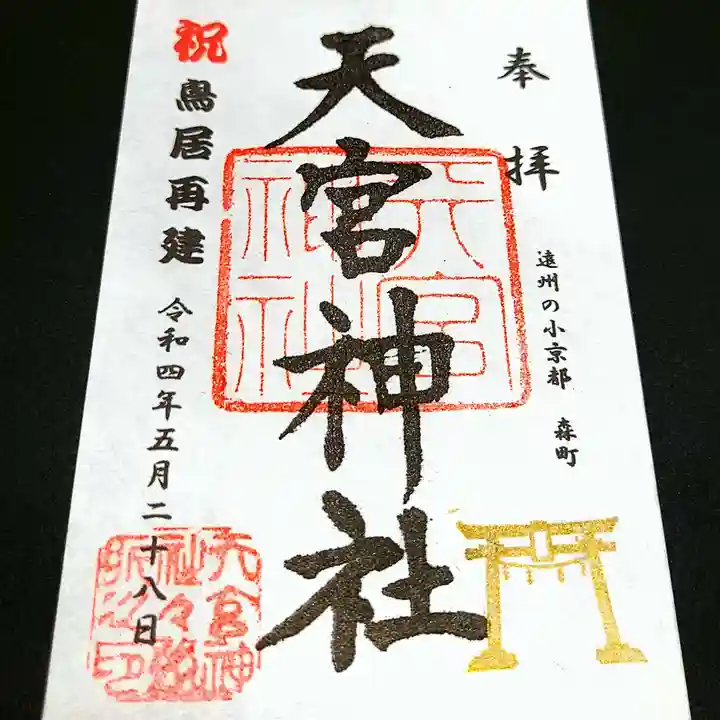 奉拝
遠州の小京都 森町
天宮神社
天宮神社
祝鳥居再建
令和四年五月二十八日
天宮神社々務所之印